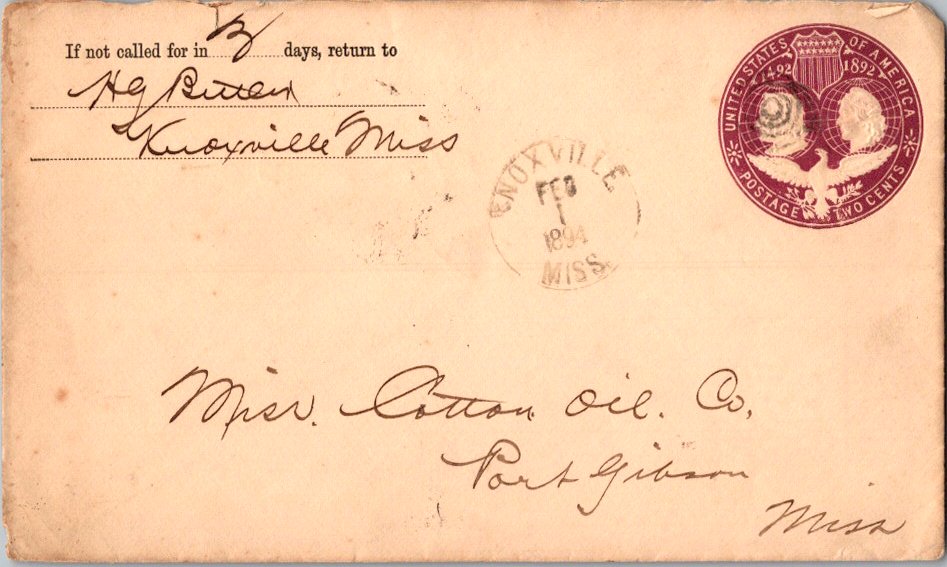 If not called for in 3 days, return to
H G Butler
Knoxville Miss
UNITED STATES OF AMERICA
1492 1892
POSTAGE TWO CENTS
KNOXVILLE
FEB
1
1894
MISS.
Missr. Cotton Oil. Co,
Port Gibson
Miss